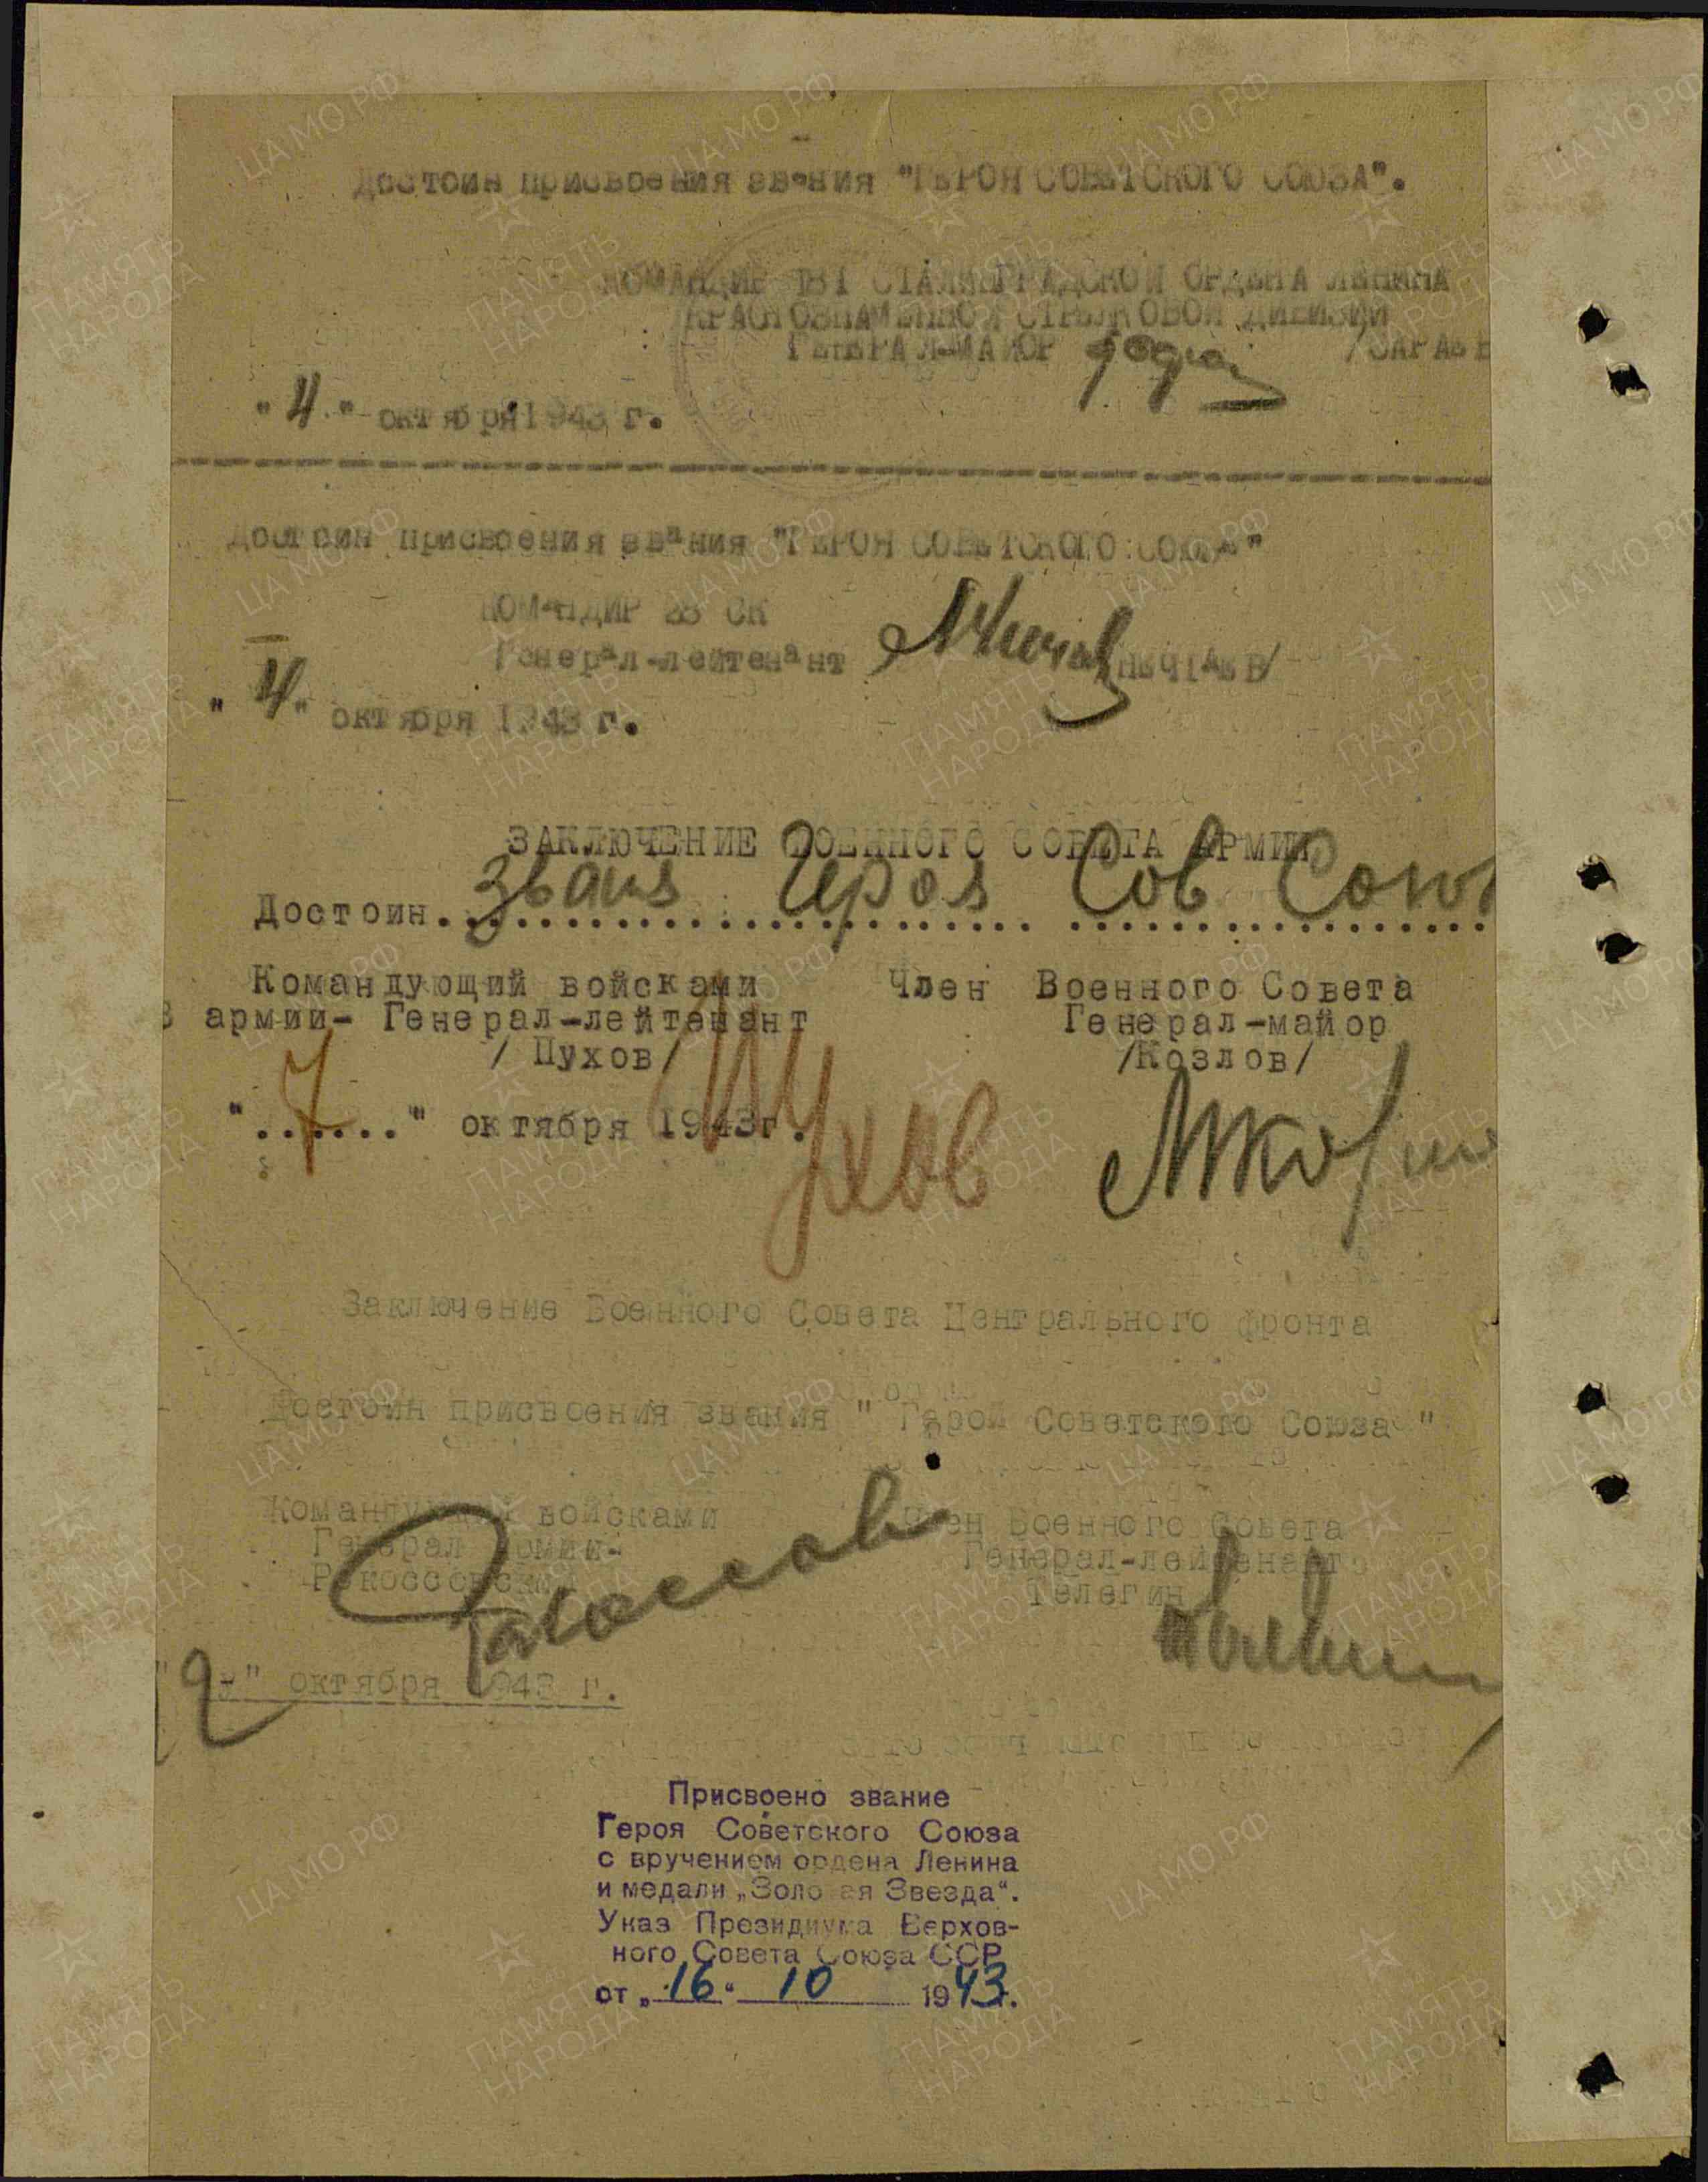 Достоин присвоения звания "ГЕРОЯ СОВЕТСКОГО СОЮЗА".
КОМАНДИР 181 СТАЛИНГРАДСКОЙ ОРДЕНА ЛЕНИНА
КРАСНОЗНАМЕННОЙ СТРЕЛКОВОЙ ДИВИЗИИ
ГЕНЕРАЛ-МАЙОР /САРАЕВ
"4." октября 1943 г.
Достоин присвоения звания "ГЕРОЯ СОВЕТСКОГО СОЮЗА"
КОМАНДИР 28 СК
Генерал-лейтенант НЕЧАЕВ/
"4" октября 1943 г.
ЗАКЛЮЧЕНИЕ ВОЕННОГО СОВЕТА АРМИИ
Достоин. звания Героя Сов Союз
Командующий войсками Член Военного Совета
3 армии- Генерал-лейтенант Генерал-майор
/ Пухов/ /Козлов/
"..7...." октября 1943г.
Пухов
Заключение Военного Совета Центрального фронта
Достоин присвоения звания " Герой Советского Союза "
Командующий войсками Член Военного Совета
Генерал Армии- Генерал-лейтенант
Рокоссовский Телегин
" " октября 1943 г.
Присвоено звание
Героя Советского Союза
с вручением ордена Ленина
и медали „Золотая Звезда“.
Указ Президиума Верхов-
ного Совета Союза ССР
от „16“ 10 1943г.
ЦАМО РФ
ПАМЯТЬ
НАРОДА